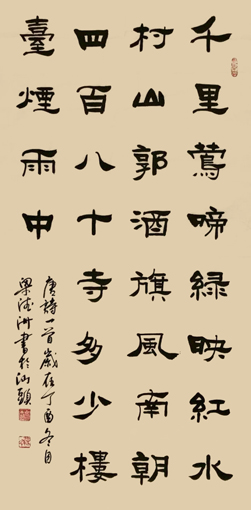 千里鶯啼緑映紅水
村山郭酒旗風南朝
四百八十寺多少樓
臺煙雨中
唐詩一首歲在丁酉冬月
梁洲書於汕頭